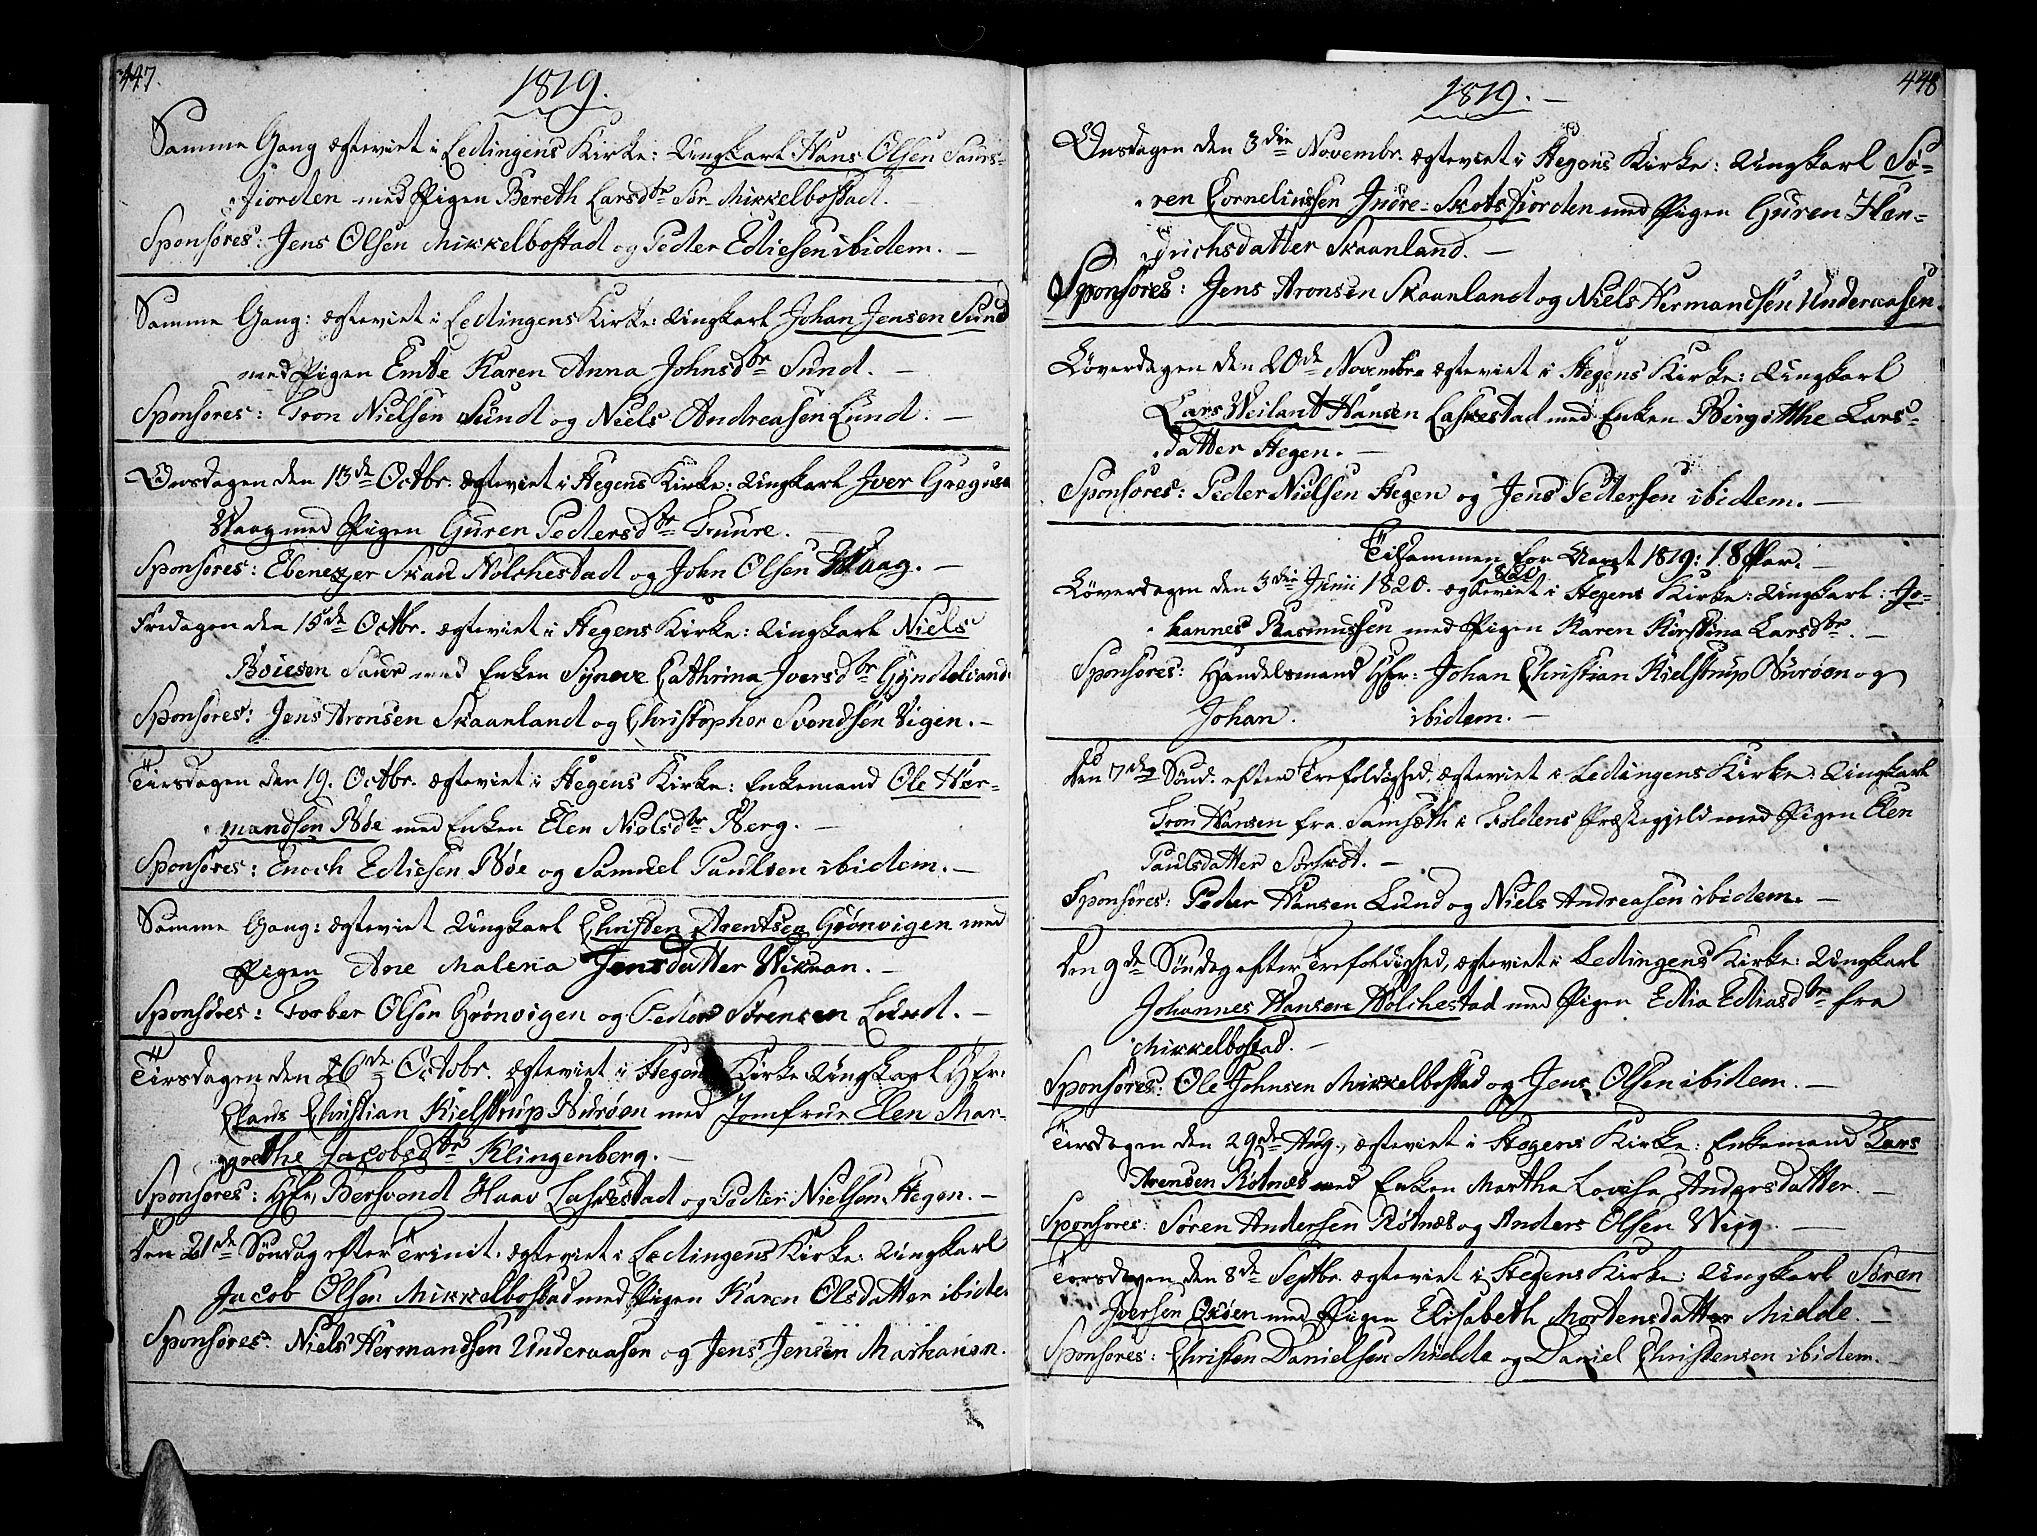 447.
1819.
Samme Gang ægteviet i Lødingens Kirke: Ungkarl Hans Olsen Saurs-
fiorden med Pigen Bereth Larsdtr Sør Mikkelbostad.
Sponsores: Jens Olsen Mikkelbostad og Peder Ediesen ibidem.
Samme Gang: ægteviet i Lødingens Kirke: Ungkarl Johan Jensen Sund
med Pigen Emte Karen Anna Johnsdtr Sund.
Sponsores: Tron Nielsen Sund og Niels Andreasen Lund.
Onsdagen den 13de Octbr. ægteviet i Stegens Kirke: Ungkarl Iver Gregus
Vaag med Pigen Guren Pedersdtr Truure.
Sponsores: Ebenezer Skau Holchestad og John Olsen Waag.
Fredagen den 15de Octbr. ægteviet i Stegens Kirke: Ungkarl Niels
Boiesen Saur med Enken Synove Cathrina Iversdtr
Sponsores: Jens Aronsen Skaanland og Christopher Svendsen Vigen.
Tirsdagen den 19. Octbr. ægteviet i Stegens Kirke: Enkemand Ole Her-
mandsen Bøe med Enken Elen Nielsdtr Berg.
Sponsores: Enoch Ediesen Bøe og Samuel Paulsen ibidem.
Samme Gang: ægteviet Ungkarl Christen Arentsen Grønvigen med
Pigen Ane Malena Jensdatter Wikran.
Sponsores: Torber Olsen Grønvigen og Peder Sørensen Lund.
Tirsdagen den 26de Octobr. ægteviet i Stegens Kirke Ungkarl Hr:
Claus Christian Kielstrup Nurøen med Jomfrue Elen Mar-
grethe Jacobsdtr Klingenberg.
Sponsores: Hr, Bersvend Haav Laskestad og Peder Nielsen Stegen.
Den 21de Søndag efter Trinit. ægteviet i Lødingens Kirke: Ungkarl
Jacob Olsen Mikkelbostad med Pigen Karen Olsdatter ibidem
Sponsores: Niels Hermandsen Underaasen og Jens Jensen
448
1819.
Onsdagen den 3die Novembr. ægteviet i Stegens Kirke: Ungkarl Sø-
ren Corneliussen Indre-Skotsfiorden med Pigen Guren Hen-
drichsdatter Skaanland.
Sponsores: Jens Aronsen Skaanland og Niels Hermandsen Underaasen.
Løverdagen den 20de Novembr. ægteviet i Stegens Kirke: Ungkarl
Lars Weilant Hansen Laskestad med Enken Birgitthe Lars-
datter Stegen.
Sponsores: Peder Nielsen Stegen og Jens Pedersen ibidem.
Tilsammen for Aaret 1819: 18 Par.
1820
Løverdagen den 3die Junii 1820. ægteviet i Stegens Kirke: Ungkarl: Jo-
hannes Rasmussen med Pigen Karen Kirstina Larsdtr.
Sponsores: Handelsmand Hr: Johan Christian Kielstrup Nurøen og
Johan. ibidem.
Den 7de Sønd. efter Trefoldighed, ægteviet i Lødingens Kirke: Ungkarl
Tron Hansen fra Samsæth i Foldens Præstegjeld med Pigen Elen
Paulsdatter
Sponsores: Peder Hansen Lund og Niels Andreasen ibidem.
Den 9de Søndag efter Trefoldighed, ægteviet i Lødingens Kirke: Ungkarl
Johannes Hansen Holchestad med Pigen Edia Ediasdtr fra
Mikkelbostad.
Sponsores: Ole Johnsen Mikkelbostad og Jens Olsen ibidem.
Tirsdagen den 29de Aug., ægteviet i Stegens Kirke: Enkemand Lars
Arensen Rotnæs med Enken Martha Lovisa Andersdatter.
Sponsores: Søren Andersen Røtnæs og Anders Olsen Wiig.
Torsdagen den 8de Septbr. ægteviet i Stegens Kirke: Ungkarl Søren
Iversen Oxøen med Pigen Elisabeth Mortensdatter Midde.
Sponsores: Christen Danielsen Midde og Daniel Christensen ibidem.